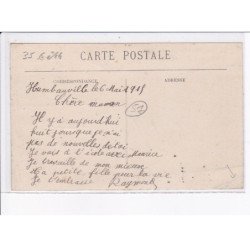 CARTE POSTALE
CORRESPONDANCE
ADRESSE
le 6 Mai 1915
Chère maman
Il y a aujourd'hui
huit jours que je n'ai
pas de nouvelles de toi
Je vais à l'école avec Monice
Je travaille de mon mieux
Ta petite fille pour la vie
Je t'embrasse Raymonde